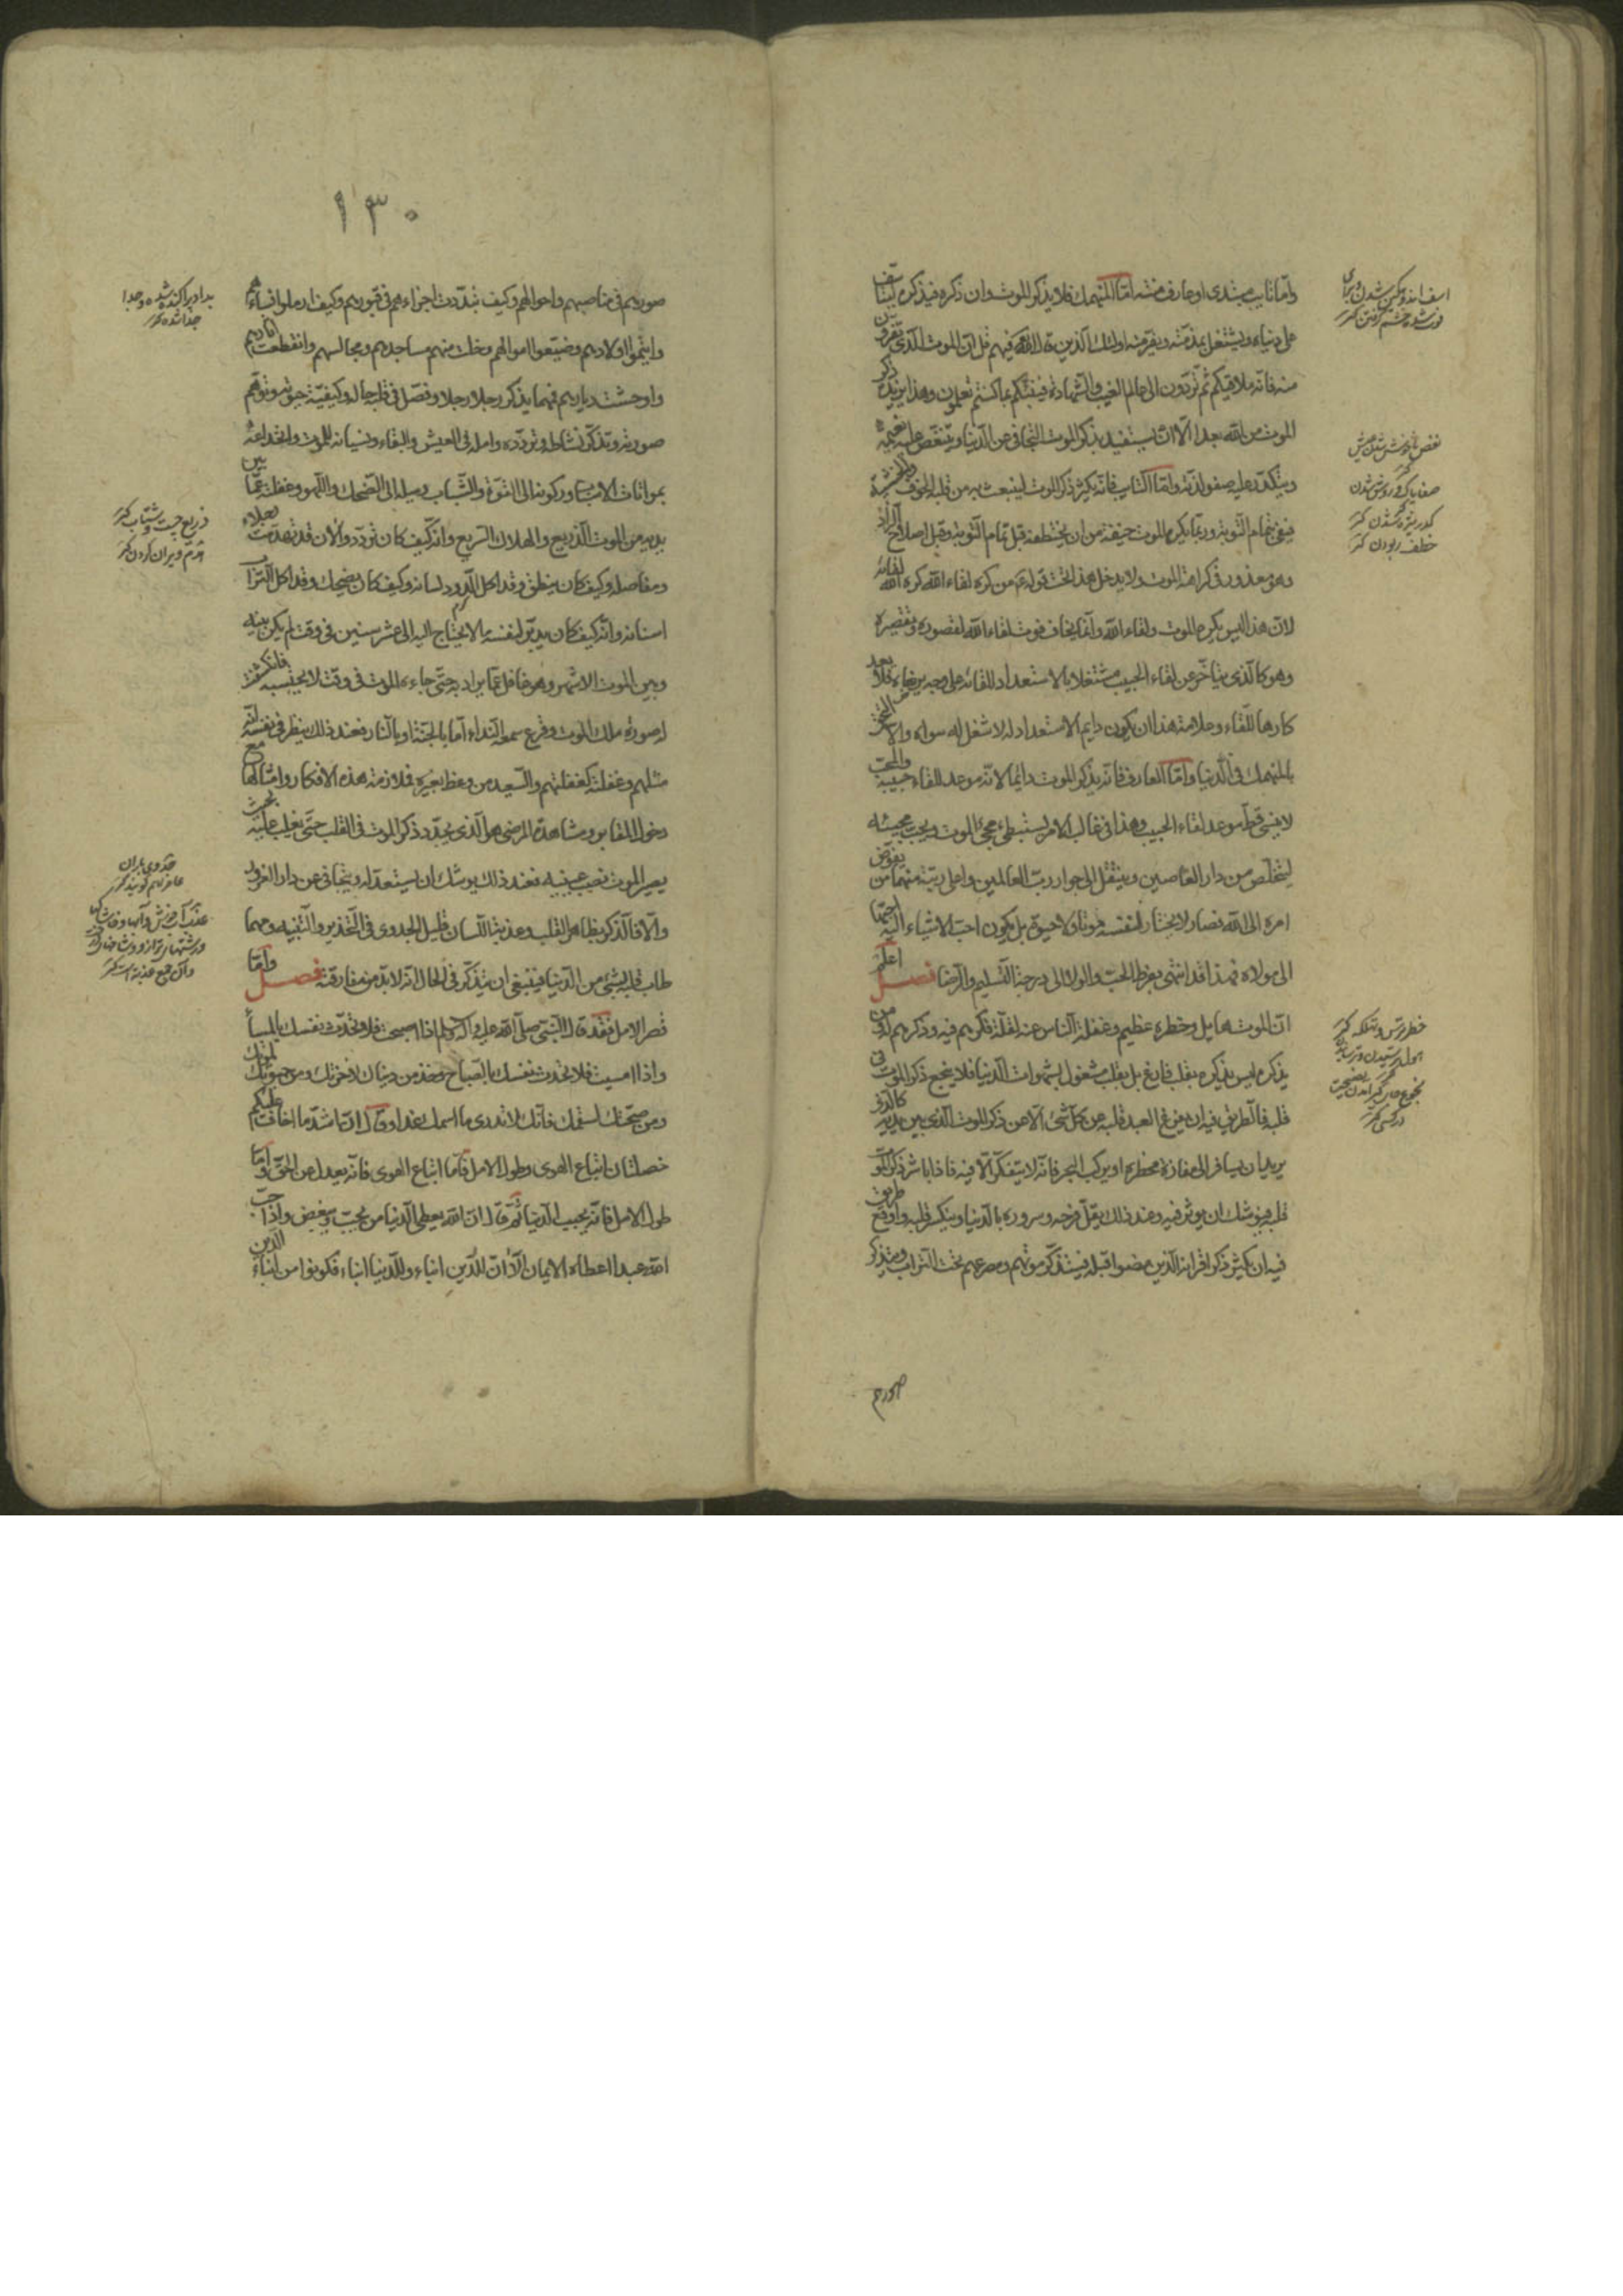 وامّا تايب مبتدى او عارف منته امّا المنهمك فلا يذكر الموت وان ذكره فيذكره ليتأسّف
على دنياه ويشتغل بمذمّته ويفرّ منه اولئك الّذين قال اللّه فيهم قل انّ الموت الّذى تفرّون
منه فانّه ملاقيكم ثمّ تردّون الى عالم الغيب والشّهادة فينبّئكم بما كنتم تعملون وهذا يزيده ذكر
الموت من اللّه بعدا الّا انّه يستفيد بذكر الموت التّجافى عن الدّنيا ويتنغّص عليه نعيمه
ويتكدّر عليه صفو لذّته وامّا التّايب فانّه يكثر ذكر الموت لينبعث به من قلبه الخوف والخشية
فيفى بتمام التّوبة وربّما يكره الموت خيفة من ان يختطفه قبل تمام التّوبة وقبل اصلاح الزّاد
وهو معذور فى كراهة الموت ولا يدخل هذا تحت قوله من كره لقاء اللّه كره اللّه لقائه
لانّ هذا ليس يكره الموت ولقاء اللّه وانّما يخاف فوت لقاء اللّه لقصوره وتقصيره
وهو كالّذى يتأخّر عن لقاء الحبيب مشتغلا بالاستعداد للقائه على وجه يرضاه فلا يعد
كارها للّقاء وعلامة هذا ان يكون دايم الاستعداد له لا شغل له سواه والّا التحق
بالمنهمك فى الدّنيا وامّا العارف فانّه يذكر الموت دائما لانّه موعد للقاء حبيبه والمحبّ
لا ينسى قطّ موعد لقاء الحبيب وهذا فى غالب الامر يستبطى مجئ الموت ويحبّ مجيئه
ليتخلّص من دار العاصين وينتقل الى جوار ربّ العالمين واعلى رتبة منهما من يفوّض
امره الى اللّه فصار لا يختار لنفسه موتا ولا حيوة بل يكون احبّ الاشياء اليه احبّها
الى مولاه فهذا قد انتهى بفرط الحبّ والولاء الى درجة التّسليم والرّضا فصل اعلم
انّ الموت هايل وخطره عظيم وغفلة النّاس عنه لقلّة فكرهم فيه وذكرهم له ومن
يذكره ليس يذكره بقلب فارغ بل بقلب مشغول بشهوات الدّنيا فلا ينجع ذكر الموت فى
قلبه فالطّريق فيه ان يفرغ العبد قلبه عن كلّ شئ الّا عن ذكر الموت الّذى بين يديه كالّذى
يريد ان يسافر الى مفازة مخطرة او يركب البحر فانّه لا يتفكّر الّا فيه فاذا باشر ذكر الموت
قلبه فيوشك ان يؤثر فيه وعند ذلك يقلّ فرحه وسروره بالدّنيا وينكسر قلبه واوقع طريق
فيه ان يكثر ذكر اقرانه الّذين مضوا قبله فيتذكّر موتهم ومصرعهم تحت التّراب ويتذكّر
صورهم
نغص ناخوش شدن عيش
خطف ربودن كنز
١٣٠
صورهم فى مناصبهم واحوالهم وكيف تبدّدت اجزاءهم فى قبورهم وكيف ارملوا نساءهم
وايتموا اولادهم وضيّعوا اموالهم وخلت منهم مساجدهم ومجالسهم وانقطعت اثارهم
واوحشت ديارهم فمهما يذكر رجلا رجلا وفصّل فى قلبه حاله وكيفيّة موته وتوهّم
صورته وتذكّر نشاطه وتردّده وامله فى العيش والبقاء ونسيانه للموت وانخداعه
بمواتات الاسباب وركونه الى القوّة والشّباب وميله الى الضّحك واللّهو وغفلته عمّا بين
يديه من الموت الذّريع والهلاك السّريع وانّه كيف كان يتردّد والآن قد تهدّمت رجلاه
ومفاصله وكيف كان ينطق وقد اكل الدّود لسانه وكيف كان يضحك وقد اكل التّراب
اسنانه وانّه كيف كان يدبّر لنفسه ما لا يحتاج اليه الى عشر سنين فى وقت لم يكن بينه
وبين الموت الّا شهر وهو غافل عمّا يراد به حتّى جاءه الموت فى وقت لا يحتسبه فانكشفت
له صورة ملك الموت وقرع سمعه النّداء امّا بالجنّة او بالنّار فعند ذلك ينظر فى نفسه انّه
مثلهم وغفلته كغفلتهم والسّعيد من وعظ بغيره فملازمة هذه الافكار وامثالها مع
دخول المقابر ومشاهدة المرضى هو الّذى يجدّد ذكر الموت فى القلب حتّى يغلب عليه بحيث
يصير الموت نصب عينيه فعند ذلك يوشك ان يستعدّ له ويتجافى عن دار الغرور
والّا فالذّكر بظاهر القلب وعذبة اللّسان قليل الجدوى فى التّحذير والتّنبيه ومهما
طاب قلبه بشئ من الدّنيا فينبغى ان يتذكّر فى الحال انّه لا بدّ من مفارقته فصل وامّا
قصر الامل فقد قال النّبىّ صلّى اللّه عليه وآله وسلم اذا اصبحت فلا تحدّث نفسك بالمساء
واذا امسيت فلا تحدّث نفسك بالصّباح وخذ من دنياك لاخرتك ومن حيوتك لموتك
ومن صحّتك لسقمك فانّك لا تدرى ما اسمك غدا وقال انّ اشدّ ما اخاف عليكم
خصلتان اتباع الهوى وطول الامل فامّا اتباع الهوى فانّه يعدل عن الحقّ وامّا
طول الامل فانّه يحبب الدّنيا ثمّ قال انّ اللّه يعطى الدّنيا من يحبّ ويبغض واذا احبّ
اللّه عبدا اعطاه الايمان الا انّ للدّين ابناء وللدّنيا ابناء فكونوا من ابناء الدّين
هدم ويران كردن كنز